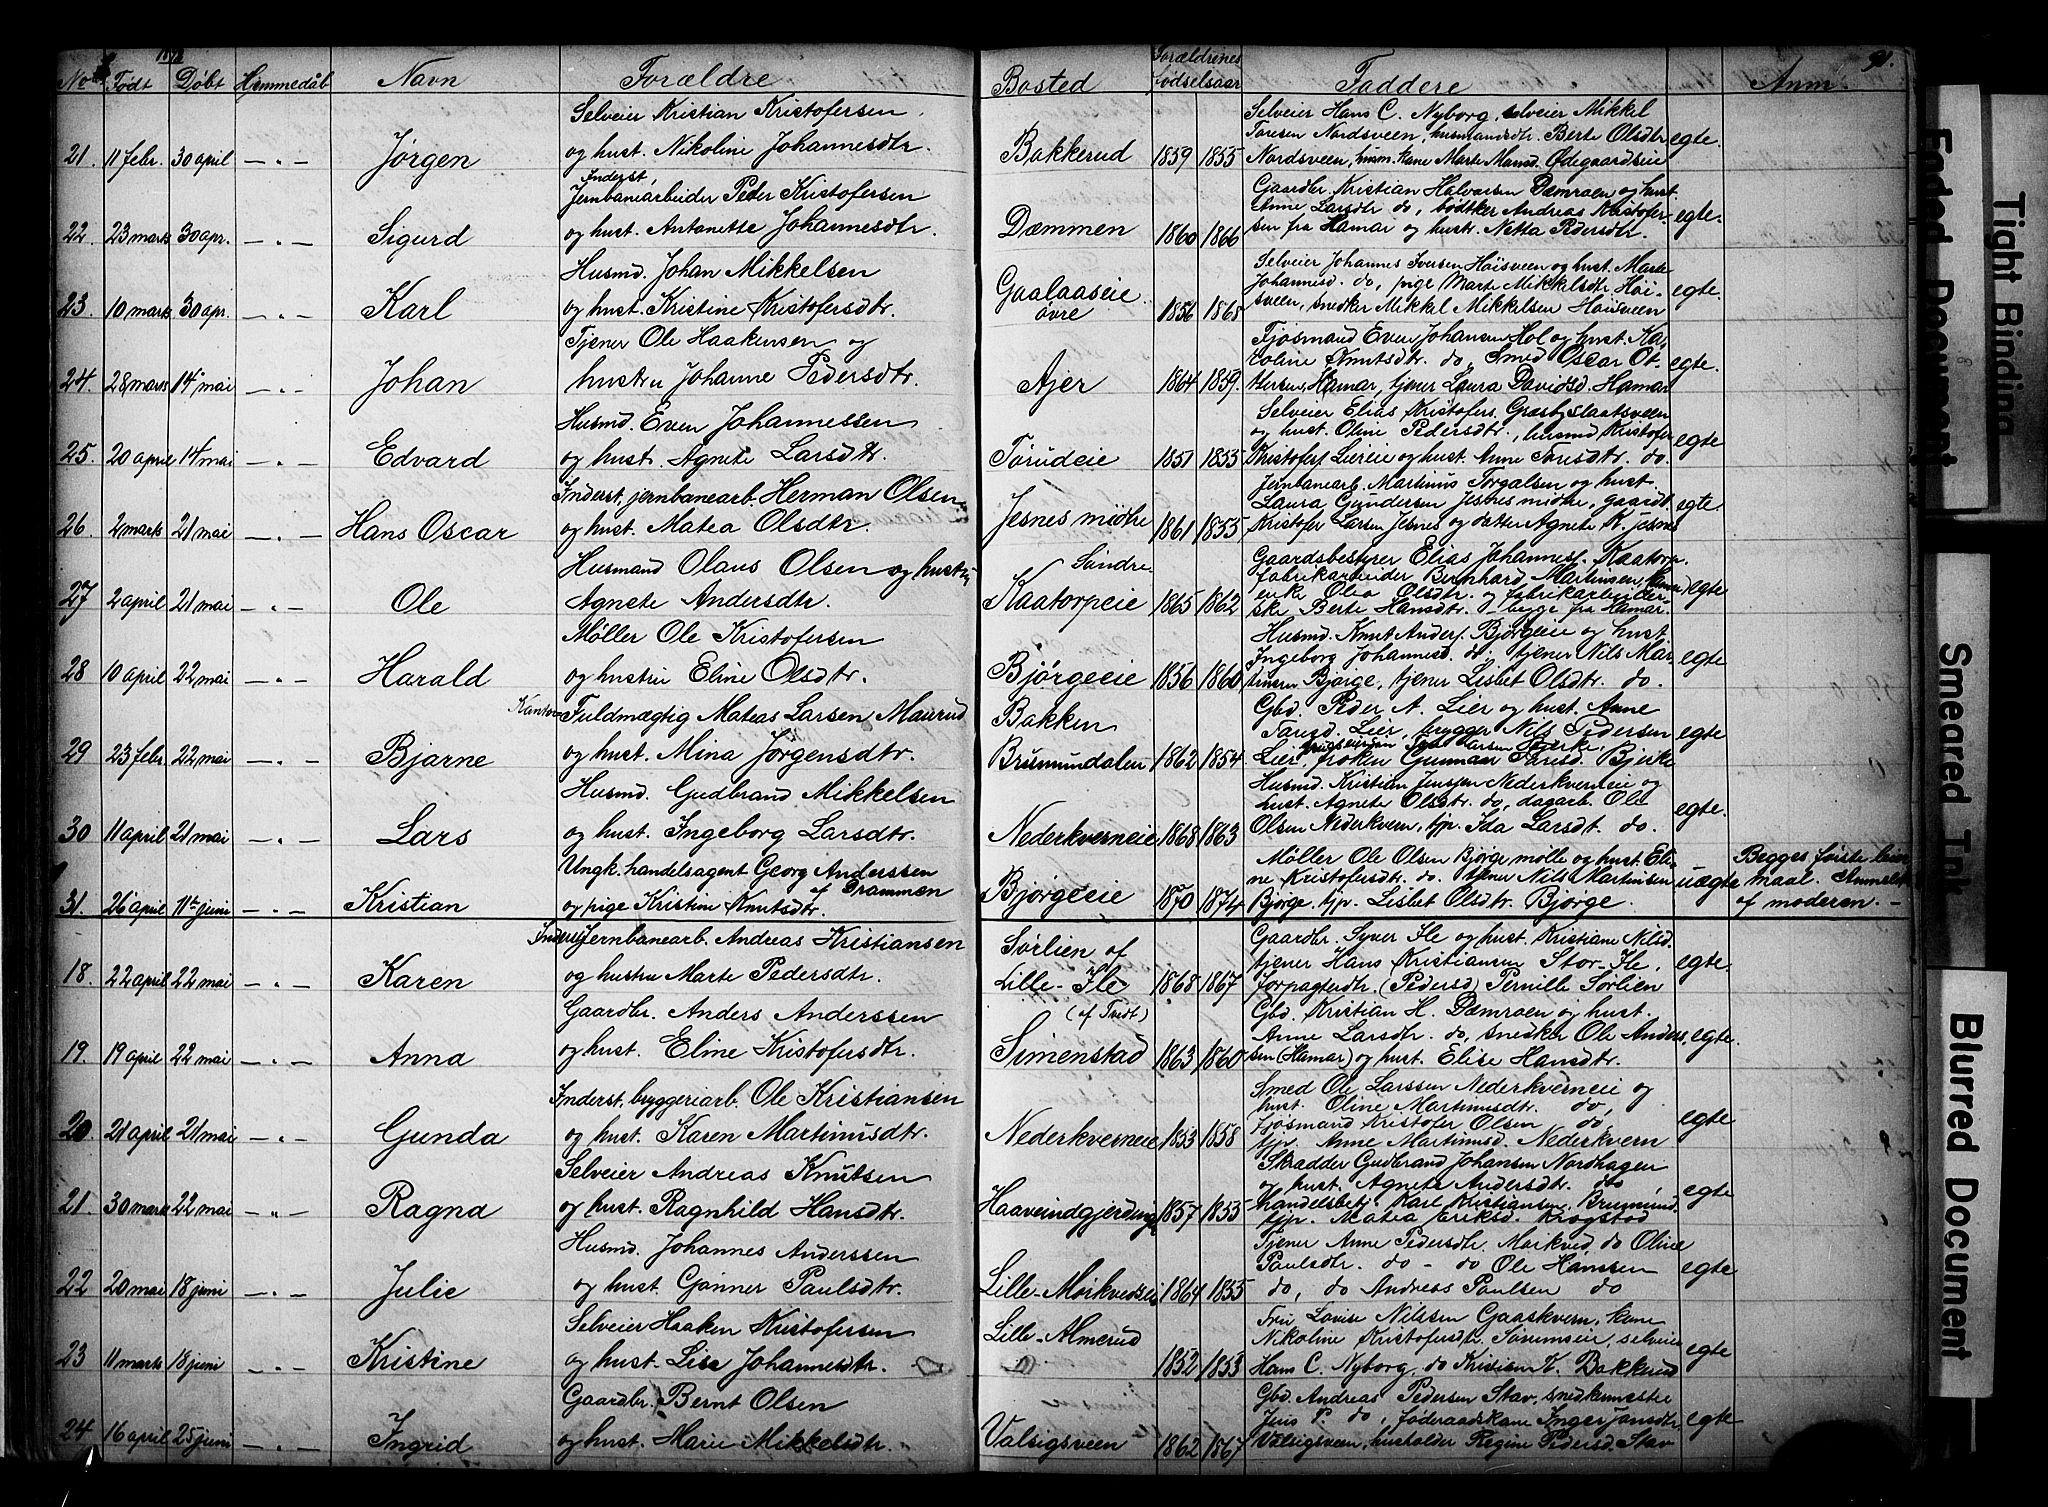 91.
No Født Døbt Hjemmedåb Navn Forældre Bosted Forældrenes fødselsaar Faddere Anm.
Selveier Kristian Kristofersen
21. 11 febr. 30 april — „ — Jørgen og hust. Nikoline Johannesdtr. Bakkerud 1859 1855
Selveier Hans C. Nyborg, selveier Mikkel
Toresen Nordsveen, husmandsdtr. Berte Olsdtr
Nordsveen, husm. kone Marte Mamd. Ødegaardseie
egte.
Inderst,
Jernbanearbeider Peder Kristofersen
22. 23 marts 30 apr. — „ — Sigurd og hust. Antonette Johannesdtr. Dæmmen 1860 1866
Gaardbr. Kristian Halvorsen Dæmroen og hust.
Anne Larsdtr do, bødtker Andreas Kristofer-
sen fra Hamar og hustr. Netta Pedersdtr.
egte.
Husmd. Johan Mikkelsen
23. 10 marts 30 apr. — „ — Karl og hust. Kristine Kristofersdtr. Gaalaaseie øvre 1856 1868
Selveier Johannes Iversen Høisveen og hust. Marte
Johannesd. do, pige Marte Mikkelsdtr Høi-
sveen, snedker Mikkel Mikkelsen Høisveen
egte.
Tjener Ole Haakensen og
24. 28 marts 14 mai — „ — Johan hustru Johanne Pedersdtr. Ajer 1864 1859.
Fjøsmand Even Johansen Hol og hust. Ka-
roline Knutsdtr. do, Smed Oscar Ot-
tersen, Hamar, tjener Laura Davidsd. Hamar
egte.
Husmd. Even Johannessen
25. 20 april 14 mai — „ — Edvard og hust. Agnete Larsdtr. Torudeie 1851 1855
Selveier Elias Kristofers. Græsbyslaatsveen
og hust. Oline Pedersdtr., husmd Kristofer
Kristofers. Liereie og hust. Anne Taresdtr. do.
egte
Inderst, jernbanearb. Herman Olsen
26. 2 marts 21 mai — „ — Hans Oscar og hust. Matea Olsdtr. Jesnes midtre 1861 1855
Jernbanearb. Martinus Torgalsen og hust.
Laura Gundersen Jesnes midtre, gaardbr.
Kristofer Larsen Jesnes og datter Agnete K. Jesnes
egte.
Husmand Olaus Olsen og hustru
27 2 april 21 mai — „ — Ole Agnete Andersdtr. Søndre Kaatorpeie 1865 1862
Gaardsbestyrer Elias Johannes. Kaatorp.
fabrikarbeider Bernhard Martinsen, Hamar
enke Olea Olsdtr. og fabrikarbeider-
ske Berte Hansdtr. begge fra Hamar.
egte
Møller Ole Kristofersen
28 10 april 22 mai — „ — Harald og hustru Eline Olsdtr. Bjørgeeie 1856 1860
Husmd. Knut Anders. Bjørgeeie og hust.
Ingeborg Johannesd. do. tjener Nils Mar-
tinsen Bjørge, tjener Lisbet Olsdtr. do.
egte
Kontor Fuldmægtig Mateas Larsen Maurud
29 23 febr. 22 mai — „ — Bjarne og hust. Mina Jørgensdtr. Bakken Brumundalen 1862 1854.
Gbd. Peder A. Lier og hust. Anne
Taresd. Lier, brygger Nils Pedersen
Lier, frøken Gunnar Taresd. Bjerke
egte
Husmd. Gudbrand Mikkelsen
30 11 april 21 mai — „ — Lars og hust. Ingeborg Larsdtr. Nederkverneie 1868 1863
Husmd. Kristian Jenssen Nederkverneie og
hust. Agnete Olsdtr. do, dagarb. Ole
Olsen Nederkvern, tjp. Ida Larsdt. do.
egte.
Ungk. handelsagent Georg Anderssen
af Drammen
31. 26 april 11te juni — „ — Kristian og pige Kristine Knutsdtr. Bjørgeeie 1870 1874
Møller Ole Olsen Bjørge mølle og hust. Eli-
ne Kristofersdtr. do. tjener Nils Martinsen
Bjørge, tjp. Lisbet Olsdtr. Bjørge.
uegte
Begges første leier-
maal. Anmeldt
af moderen. —
Inderst, Jernbanearb. Andreas Kristiansen
18. 22 april 22 mai — „ — Karen og hustru Marte Pedersdtr. Sørlien af Lille-Ile 1868 1867
Gaardbr. Syver Ile og hust. Kristiane Nilsd.
tjener Hans Kristiansen Stor-Ile,
forpagterdtr. (Pedersd) Pernille Sørlien
egte.
Gaardbr. Anders Anderssen
19. 19 april 22 mai — „ — Anna og hust. Eline Kristofersdtr. (af Tvedt) Simenstad 1863 1860
Gbd. Kristian H. Dæmroen og hust.
Anne Larsdtr. do, snedker Ole Anders-
sen (Hamar) og hust. Elise Hansdtr.
egte.
Inderst, bryggeriarb. Ole Kristiansen
20. 21 april 21 mai — „ — Gunda og hust. Karen Martinusdtr. Nederkverneie 1853 1858
Smed Ole Larssen Nederkverneie og
hust. Oline Martinusdtr. do,
fjøsmand Kristofer Olsen do,
tjp. Anne Martinusd. Nederkvern
egte
Selveier Andreas Knutsen
21. 30 marts 22 mai — „ — Ragna og hust. Ragnhild Hansdtr. Haaveindgjerdinge 1857 1855
Skrædder Gudbrand Johansen Nordhagen
og hust. Agnete Andersdtr. do,
handelsbetj. Karl Kristiansen, Brumund.
tjp. Matea Eriksd. Krogstad
egte
Husmd. Johannes Anderssen
22 20 mai 18 juni — „ — Julie og hust. Gønner Paulsdtr. Lille-Mørkvedseie 1864 1855
Tjener Anne Pedersdtr. Mørkved, do Oline
Paulsdtr. do — do Ole Hanssen
do, do Andreas Paulsen do
egte
Selveier Haaken Kristofersen
23 11 marts 18 juni — „ — Kristine og hust. Lise Johannesdtr. Lille-Almerud 1852 1853
Fru Lovise Nilssen Gaaskvern, kone
Nikoline Kristofersdtr. Sørumseie, selveier
Hans C. Nyborg, do Kristian K. Bakkerud
egte
Gaardbr. Bernt Olsen
24. 16 april 25 juni — „ — Ingrid og hust. Marie Mikkelsdtr. Valsigsveen 1862 1867
Gbd. Andreas Pedersen Stav, snedkermester
Jens P. do, føderaadskone Inger Jonsdtr
Valsigsveen, husholder Regine Pedersd. Stav
egte
Faded Document
Tight Binding
Smeared Ink
Blurred Document